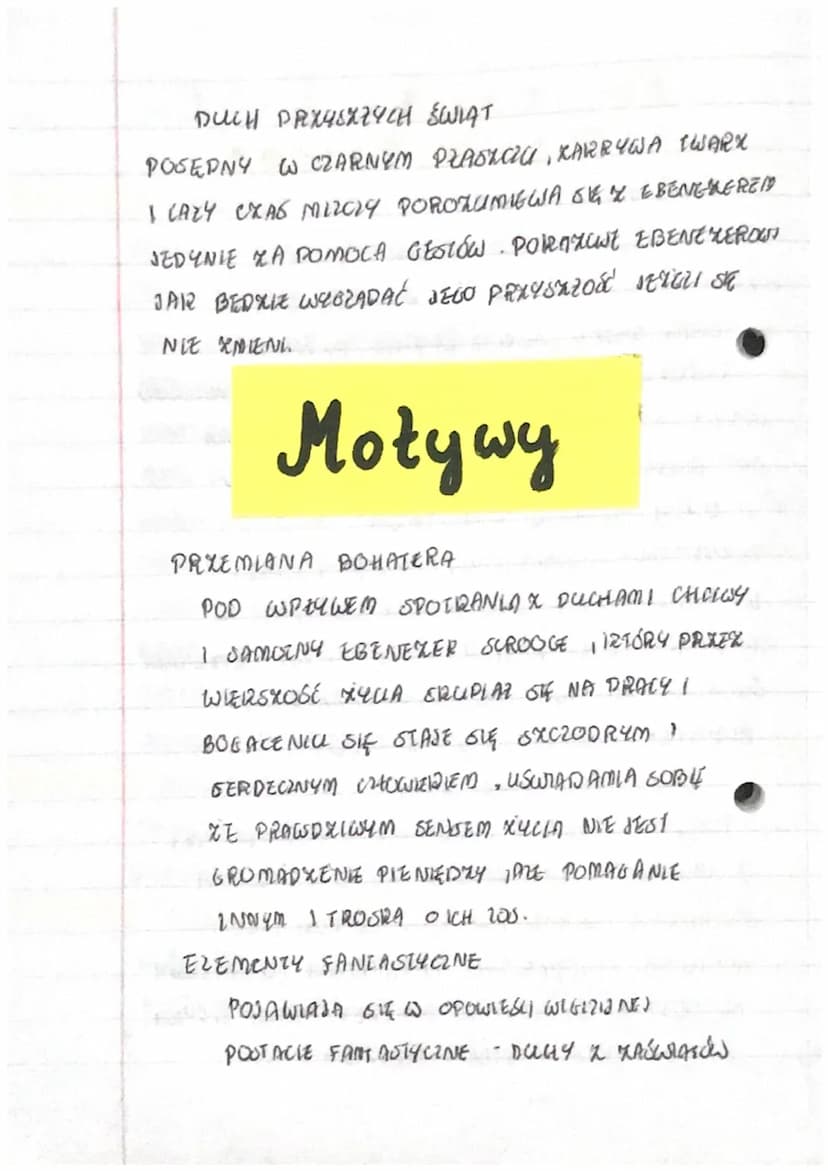 DUCH PRZYSZŁYCH ŚWIĄT
POSĘPNY W CZARNYM PŁASZCZU, ZAKRYWA TWARZ
I CAŁY CZAS MILCZY POROZUMIEWA SIĘ Z EBENEZEREM
JEDYNIE ZA POMOCA GESTÓW. POKAZUJE EBENEZEROWI
JAK BEDZIE WYGLĄDAĆ JEGO PRZYSZŁOŚĆ JEŻELI SIĘ
NIE ZMIENI.
Motywy
PRZEMIANA BOHATERA
POD WPŁYWEM SPOTKANIA Z DUCHAMI CHCIWY
I SAMOLNY EBENEZER SCROOGE, KTÓRY PRZEZ
WIEKSZOŚĆ ŻYCIA SKUPIAŁ SIĘ NA PRACY I
BOGACENIU SIĘ STAJE SIĘ SZCZODRYM I
SERDECZNYM CZŁOWIEKIEM, USWIADAMIA SOBIE
ŻE PRAWDZIWYM SENSEM ŻYCIA NIE JEST
GROMADZENIE PIENIĘDZY, ALE POMAGANIE
INNYM I TROSKA O ICH LOS.
ELEMENTY FANTASTYCZNE
POJAWIAJA SIĘ W OPOWIEŚCI WIGILIJNEJ
POSTACIE FANTASTYCZNE - DUCHY Z ZAŚWIATÓW